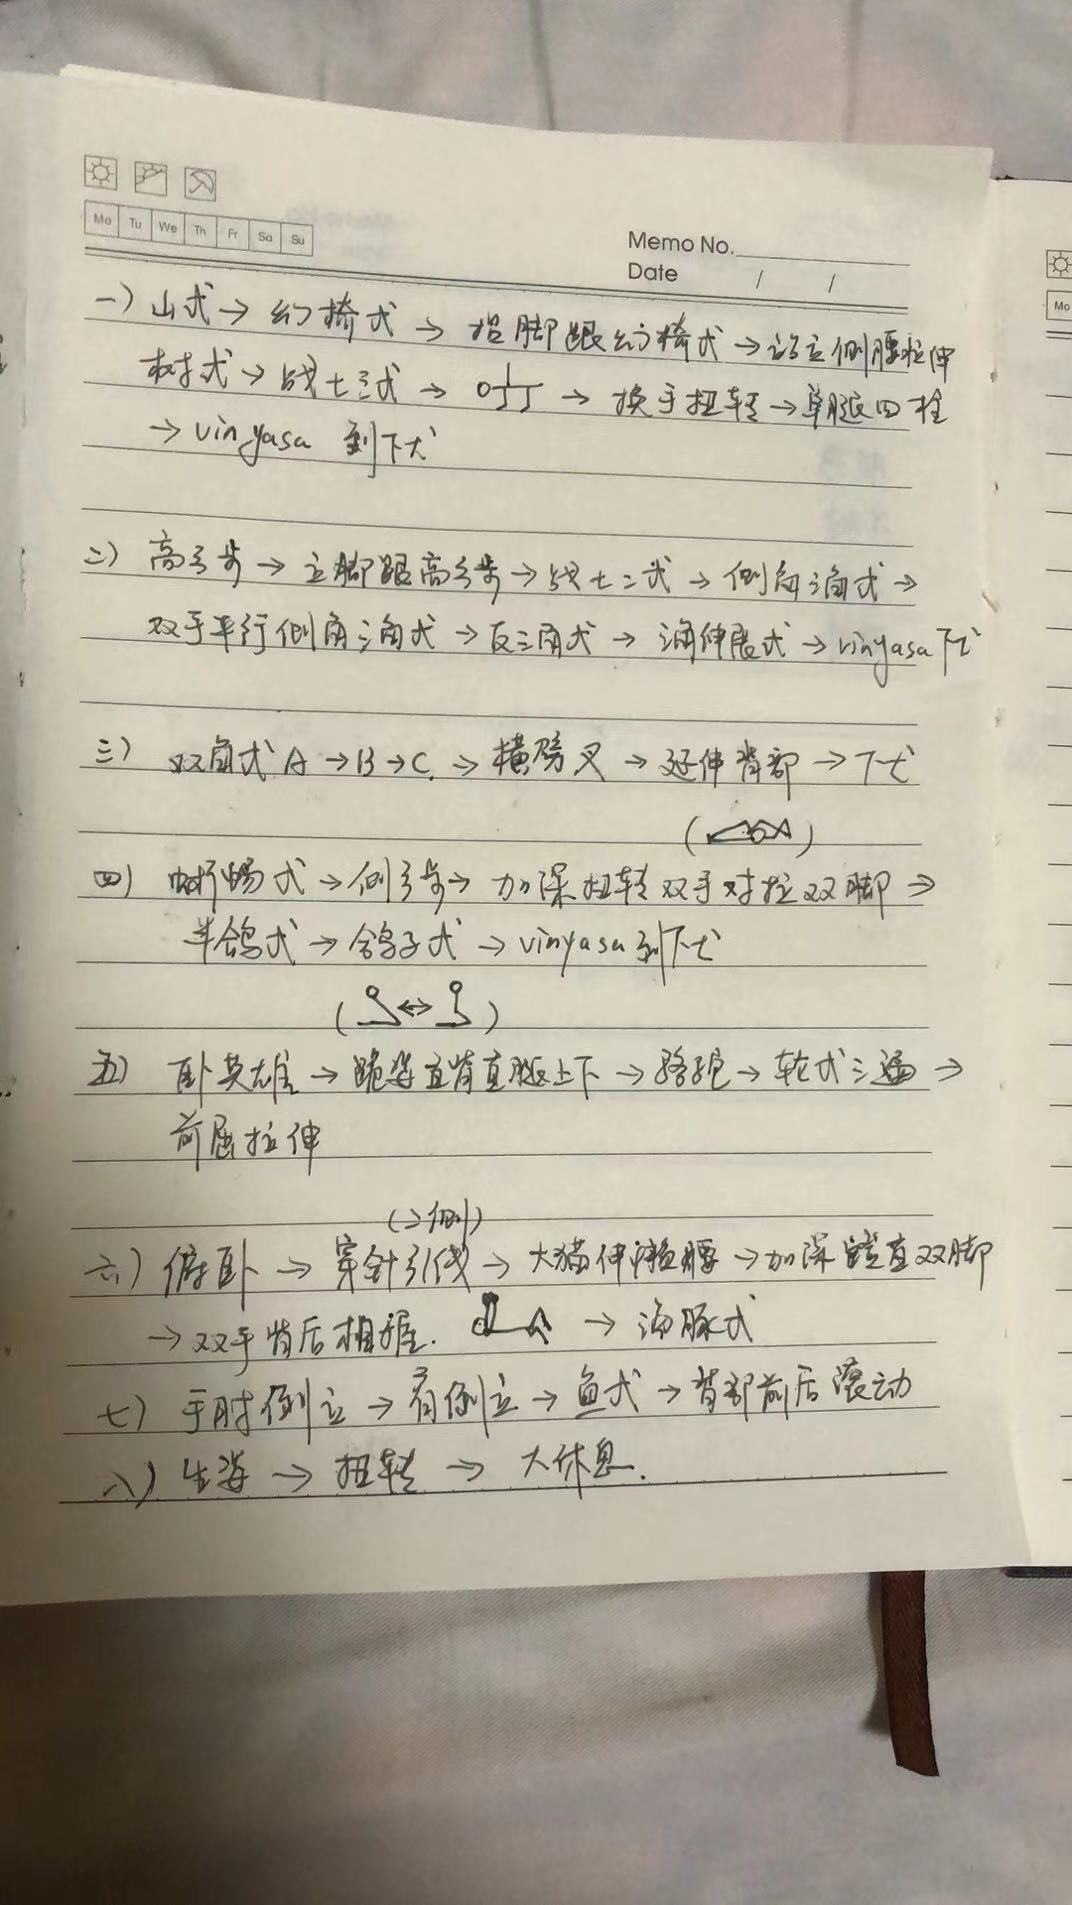 Mo Tu We Th Fr Sa Su
Memo No.
Date / /
一) 山式→幻椅式→抬脚跟幻椅式→站立侧腰拉伸
树式→战士三式→ →换手扭转→单腿四柱
→vinyasa 到下犬
二) 高弓步→立脚跟高弓步→战士二式→侧角三角式→
双手平行侧角三角式→反三角式→三角伸展式→vinyasa下犬
三) 双角式A→B→C→横劈叉→延伸背部→下犬
( )
四) 蜥蜴式→侧弓步→加深扭转双手对拉双脚→
半鸽式→鸽子式→vinyasa到下犬
( ↔ )
五) 卧英雄→跪姿直背直腿上下→骆驼→轮式三遍→
前屈拉伸
(二侧)
六) 俯卧→穿针引线→大猫伸懒腰→加深蹬直双脚
→双手背后相握. →海豚式
七) 手肘倒立→肩倒立→鱼式→背部前后滚动
八) 坐姿→扭转→大休息.
Mo